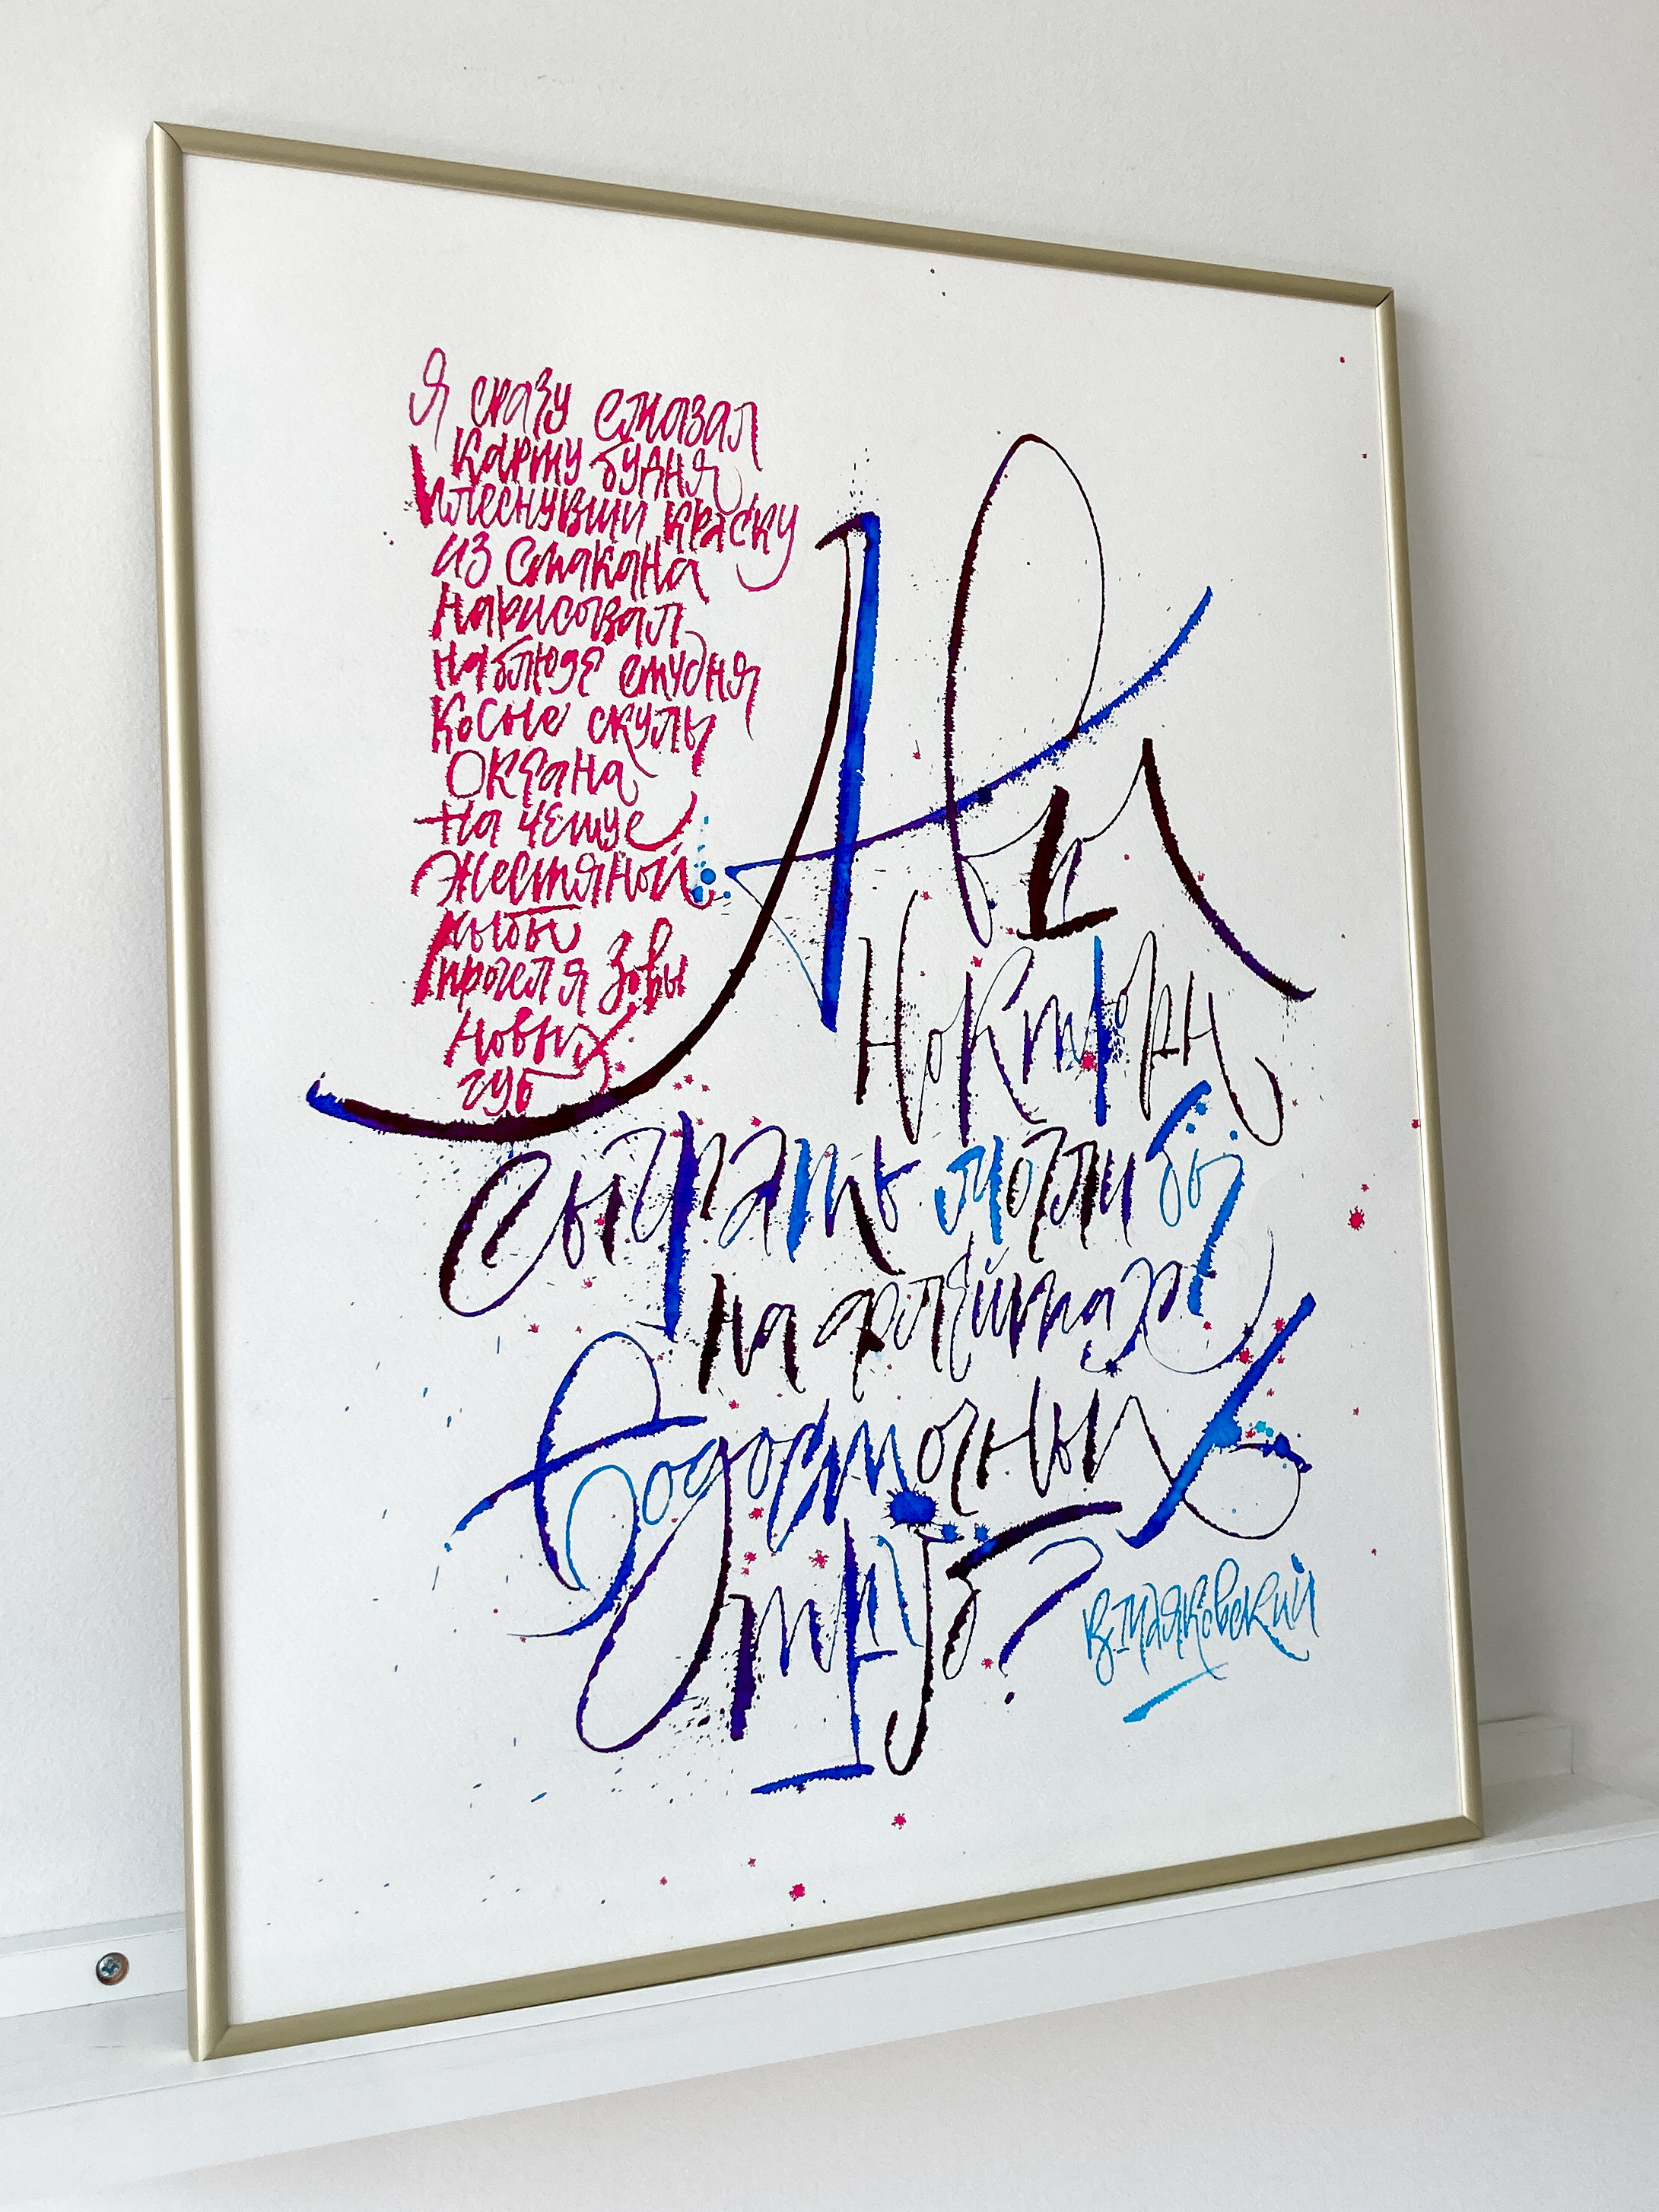 Я сразу смазал
карту будня
плеснувши краску
из стакана
Я показал
на блюде студня
косые скулы
океана
На чешуе
жестяной
рыбы
прочел я зовы
новых
губ
А вы
ноктюрн
сыграть могли бы
на флейтах
водосточных
труб?
В. Маяковский